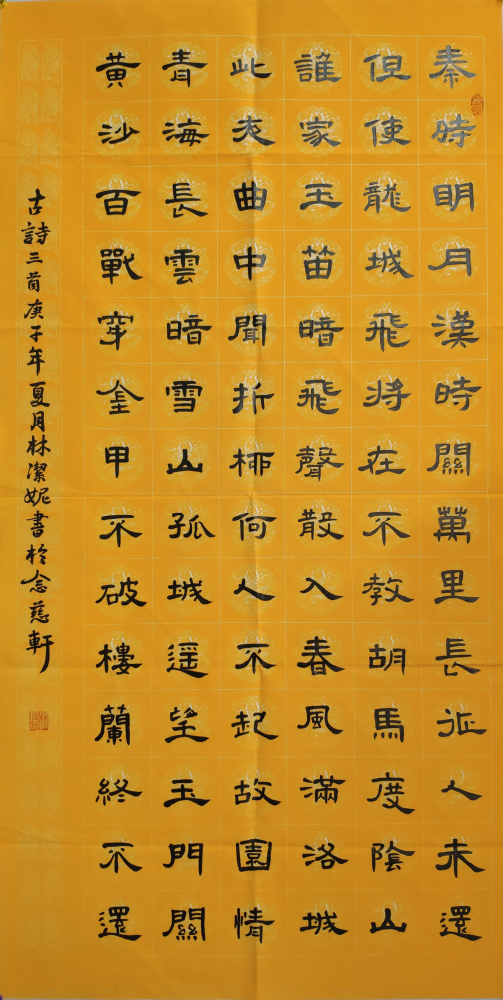 秦時明月漢時關萬里長征人未還
但使龍城飛將在不教胡馬度陰山
誰家玉笛暗飛聲散入春風滿洛城
此夜曲中聞折柳何人不起故園情
青海長雲暗雪山孤城遥望玉門關
黃沙百戰穿金甲不破樓蘭終不還
古詩三首庚子年夏月林潔妮書於念慈軒